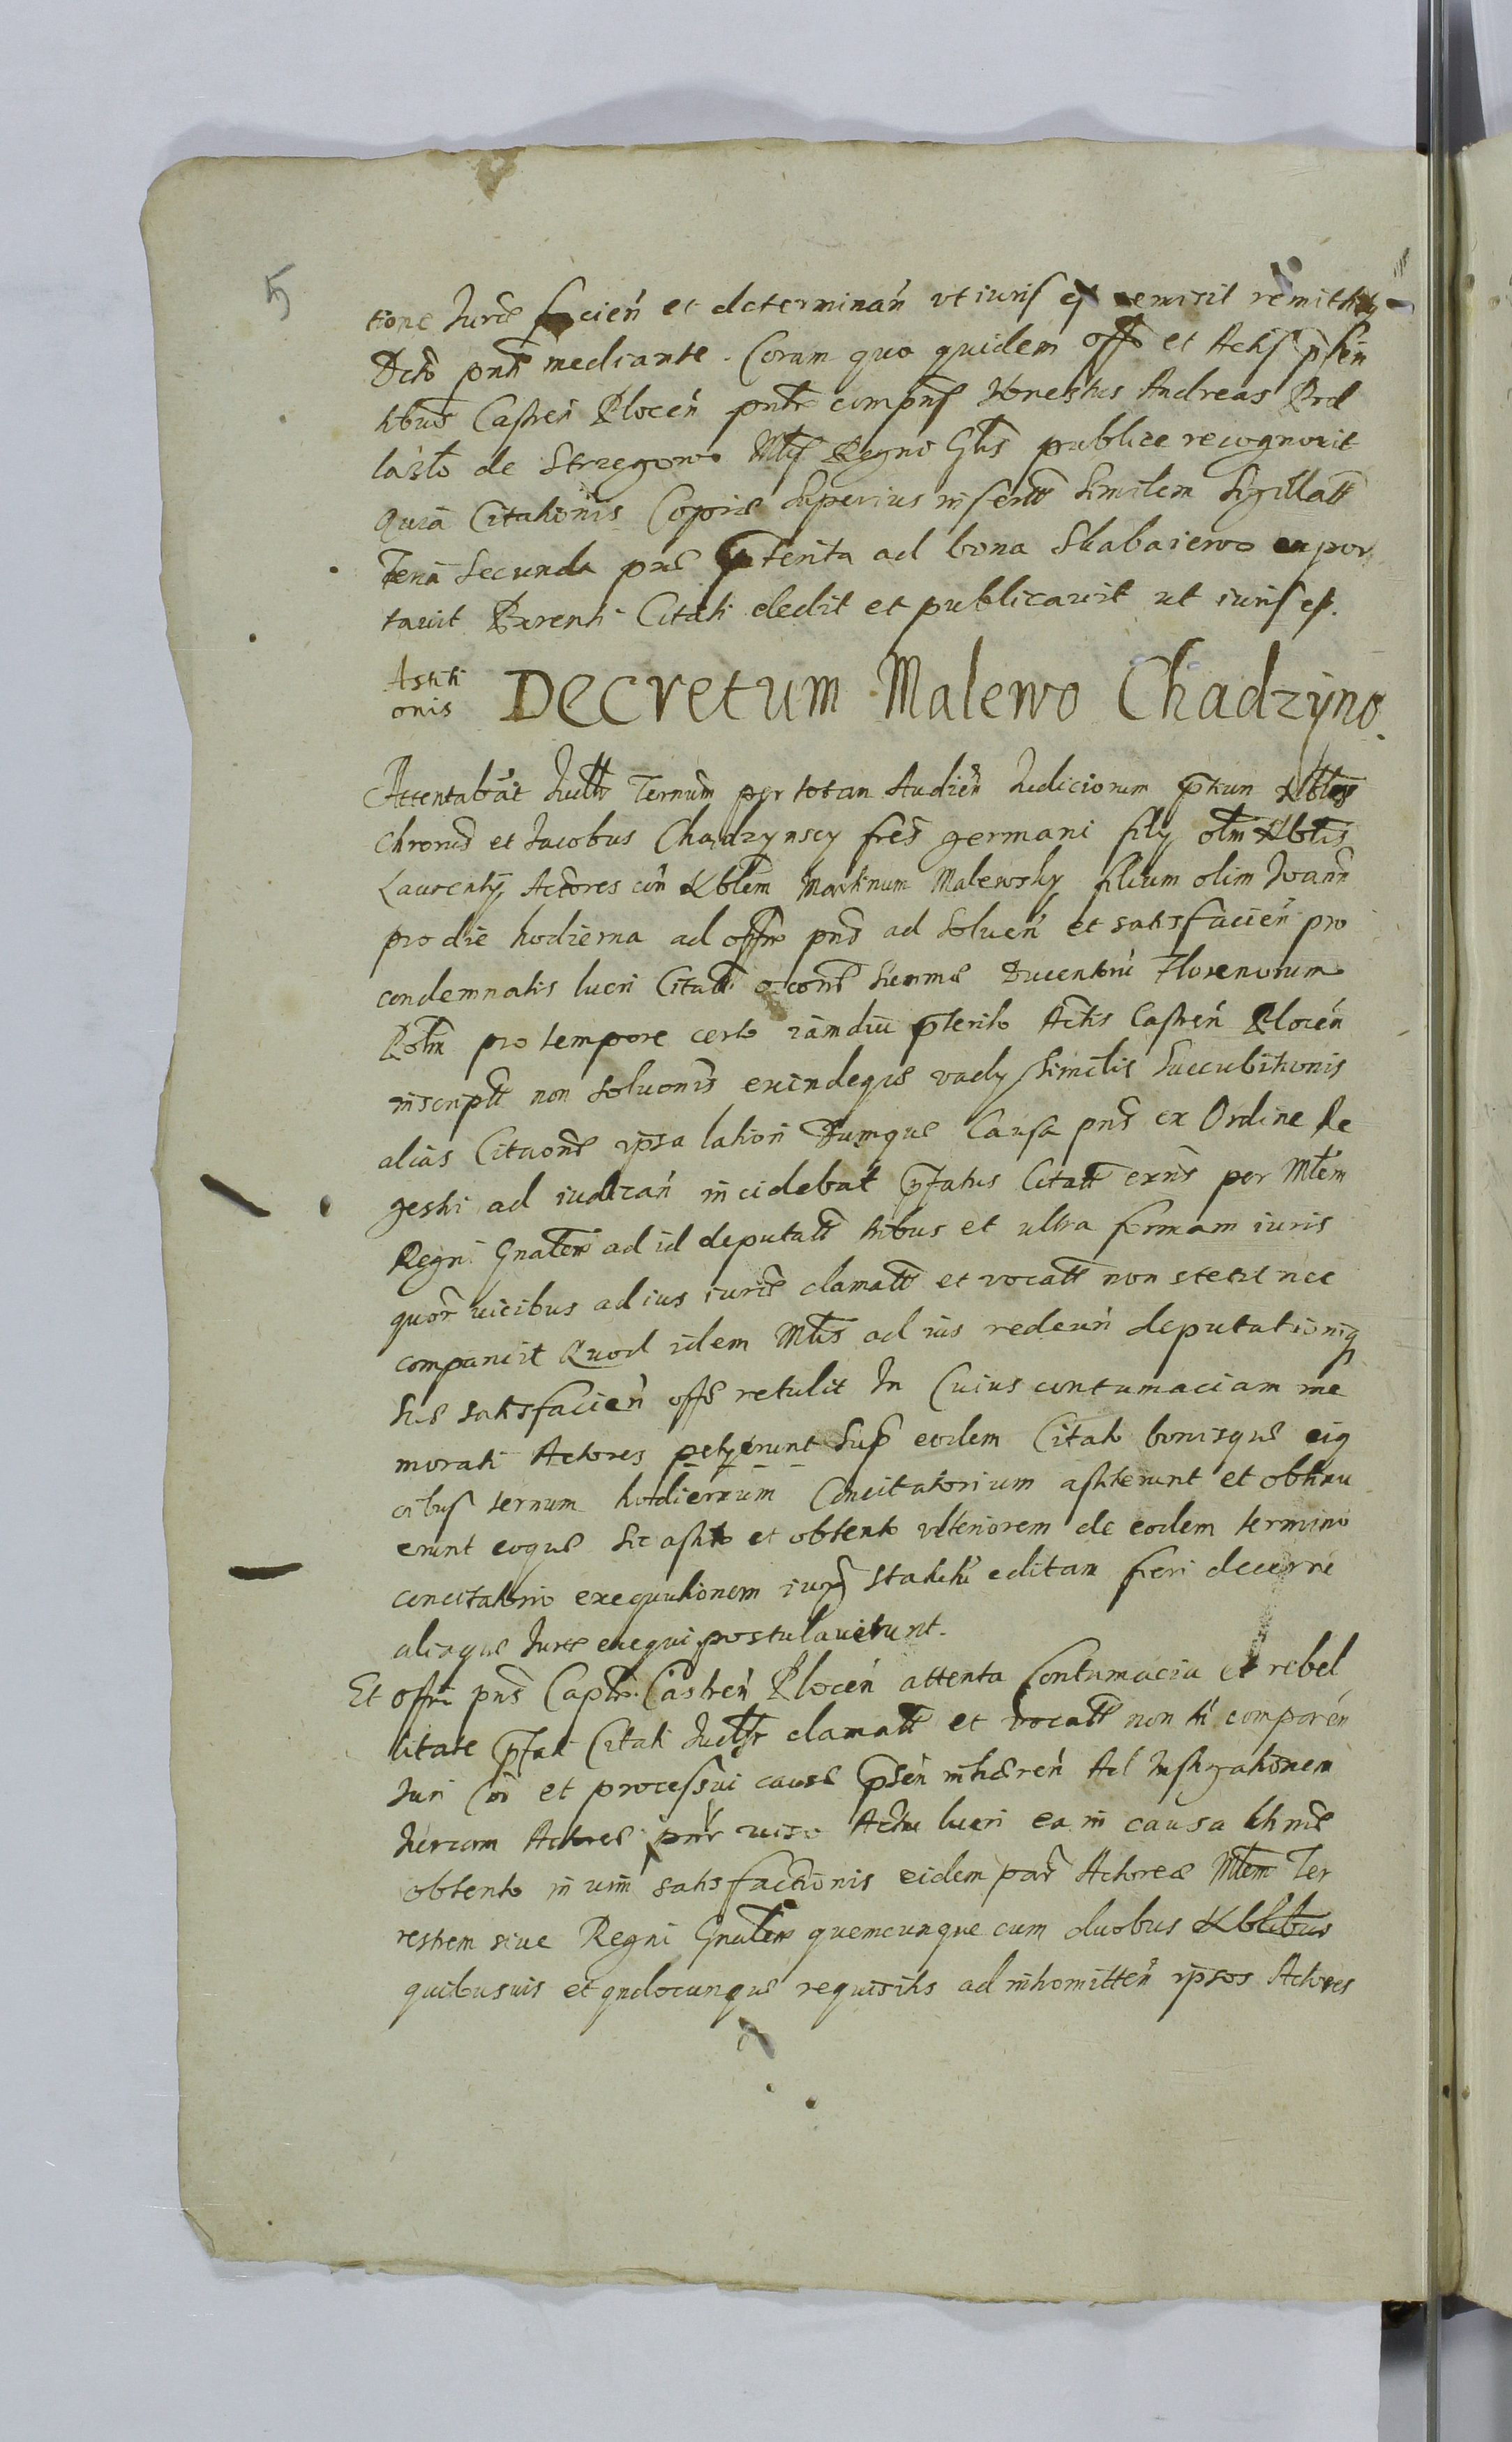 5
tione Jurꝭ facień et determinań ut iuris est remisit remittitq
Dctō pntī mediante. Coram quo quidem offo et Actis p̄sen
tibus Castreń Ploceń pntr compns Honestus Andreas Pod
laszlo de Strzegowo Mtis Regni Glis publice recognovit
Quia Citationis Copiæ Superius insertæ Similem Sigillatā
Feria Secunda pnē p̄terita ad bona Skabaiewo appor
tavit Parenti Citati dedit et publicavit ut iuris est.
Astiti
onis
Decretum Malewo Chadzyno.
Attentabāt Juditr Termum per totam Audień Judiciorum p̄ntium Nbles
et Jacobus Chadzynscy frēs germani filij olim Nblis
Laurentij Actores cū Nblem Martinum Malewsky filium olim Joann
pro die hodierna ad offm pns ad Solueń et satisfacień pro
condemnatis lucri Citatū one Summæ Ducentorū Florenorum
Polm pro tempore certo iamdiu p̄terito Actis Castreń Ploceń
inscriptæ non Solutionis exindeque vadij Similis Succubitionis
alias Citaone ipsa latiori Dumque Causa pns ex Ordine Re
gestri ad iudicań incidebat p̄fatus Citatus exns per Mtem
Regni Gnalem ad id deputatū tribus et ultra formam iuris
quor vicibus ad ius iurꝭ clamatus et vocatus non stetit nec
comparuit Quod idem Mtis ad ius redeuń deputationiq
Suæ satisfacień offo retulit In Cuius contumaciam me
morati Actores petyerunt Sup eodem Citato bonisque eiq
oibus termum hodiernum Concitatorium astiterunt et obtinu
erunt eoque Sic astito et obtento ulteriorem de eodem termino
concitatorio exequutionem iurꝭ Statutū editam fieri decerni
aliaque Jurꝭ exequi postulaverunt.
Et offm pns Captle Castreń Ploceń attenta Contumacia et rebel
litate p̄fati Citati Juditr clamati et vocati non tn compareń
Juri Coi et processui causæ p̄seń inhæreń Ad Instigationem
Actoreæ pntr viso Actu lucri ea in causa
obtento in vim satisfactionis eidem parti Actoreæ Mtem Ter
restrem sive Regni Gnalem quemcunque cum duobus Nblibus
quibusvis et undecunque requisitis ad intromitteń ipsos Actores